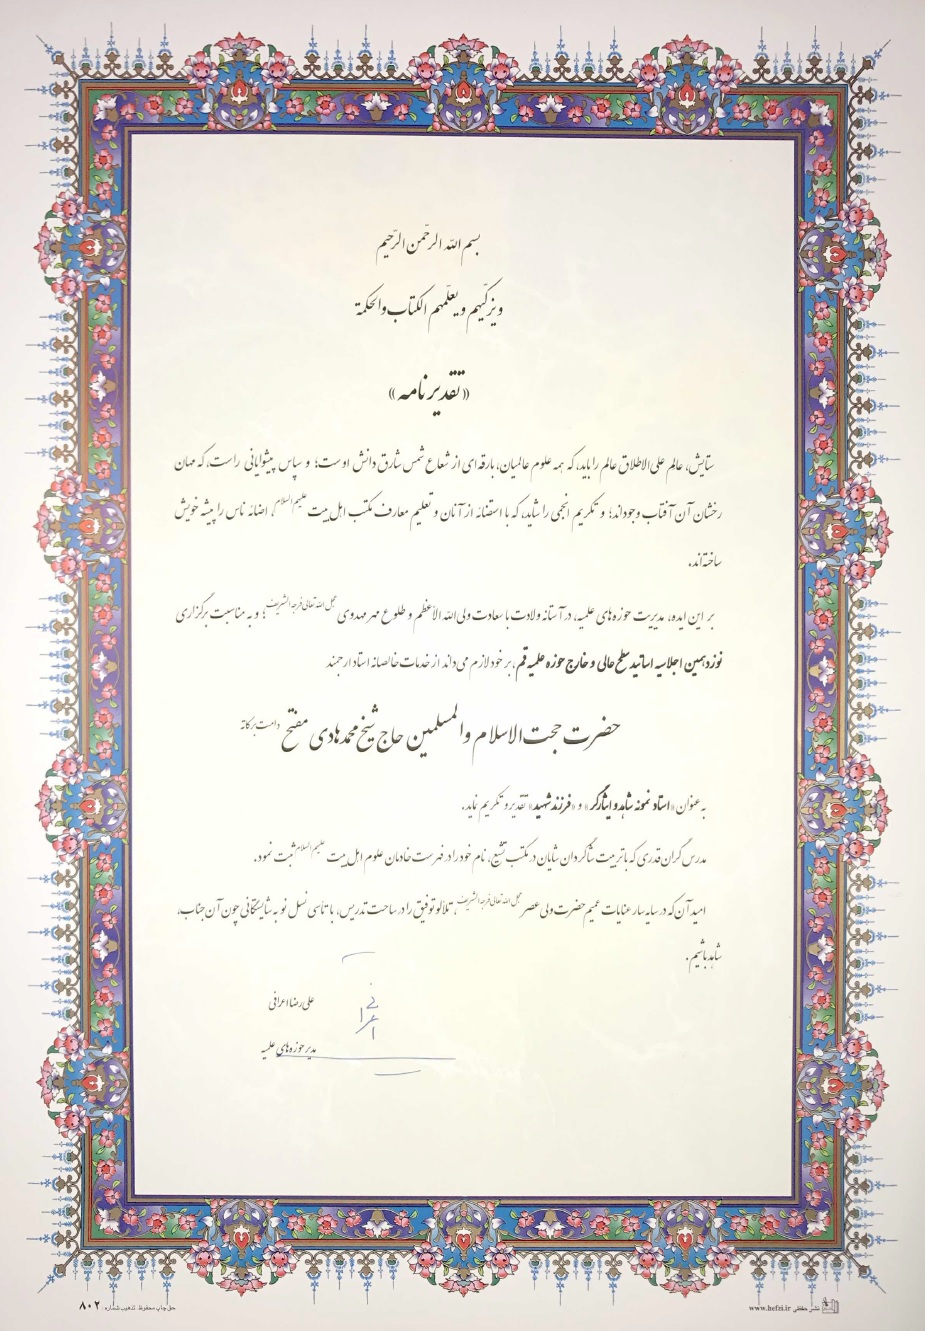 بسم الله الرّحمن الرّحیم
ویزکّیهم و یعلّمهم الکتاب والحکمة
«تقدیرنامه»
ستایش، عالم علی‌الاطلاق عالم را باید، که همه علوم عالمیان، بارقه‌ای از شعاع شمس شارق دانش اوست؛ و سپاس پیشوایانی راست، که مهان
رخشان آن آفتاب وجوداند؛ و تکریم انجمی را شاید، که با استضائه از آنان و تعلیم معارف مکتب اهل بیت علیهم السلام، اضائه ناس را پیشه خویش
ساخته‌اند.
بر این ایده، مدیریت حوزه‌های علمیه، در آستانه ولادت با سعادت ولی‌الله الاعظم و طلوع مهر مهدوی عجل الله تعالی فرجه الشریف؛ و به مناسبت برگزاری
نوزدهمین اجلاسیه اساتید سطح عالی و خارج حوزه علمیه قم، بر خود لازم می‌داند از خدمات خالصانه استاد ارجمند
حضرت حجت‌الاسلام والمسلمین حاج شیخ محمدهادی مفتح دامت برکاته
به عنوان «استاد نمونه شاهد و ایثارگر» و «فرزند شهید» تقدیر و تکریم نماید.
مدرس گران‌قدری که با تربیت شاگردان شایان در مکتب تشیع، نام خود را در فهرست خادمان علوم اهل بیت علیهم السلام ثبت نمود.
امید آن که در سایه‌سار عنایات عمیم حضرت ولی عصر عجل الله تعالی فرجه الشریف، تلالو توفیق را در ساحت تدریس، با تأسی نسل نو به شایستگانی چون آن جناب،
شاهد باشیم.
علی‌رضا اعرافی
مدیر حوزه‌های علمیه
حق چاپ محفوظ تذهیب شماره: ۸۰۲
نشر حفظی www.hefri.ir